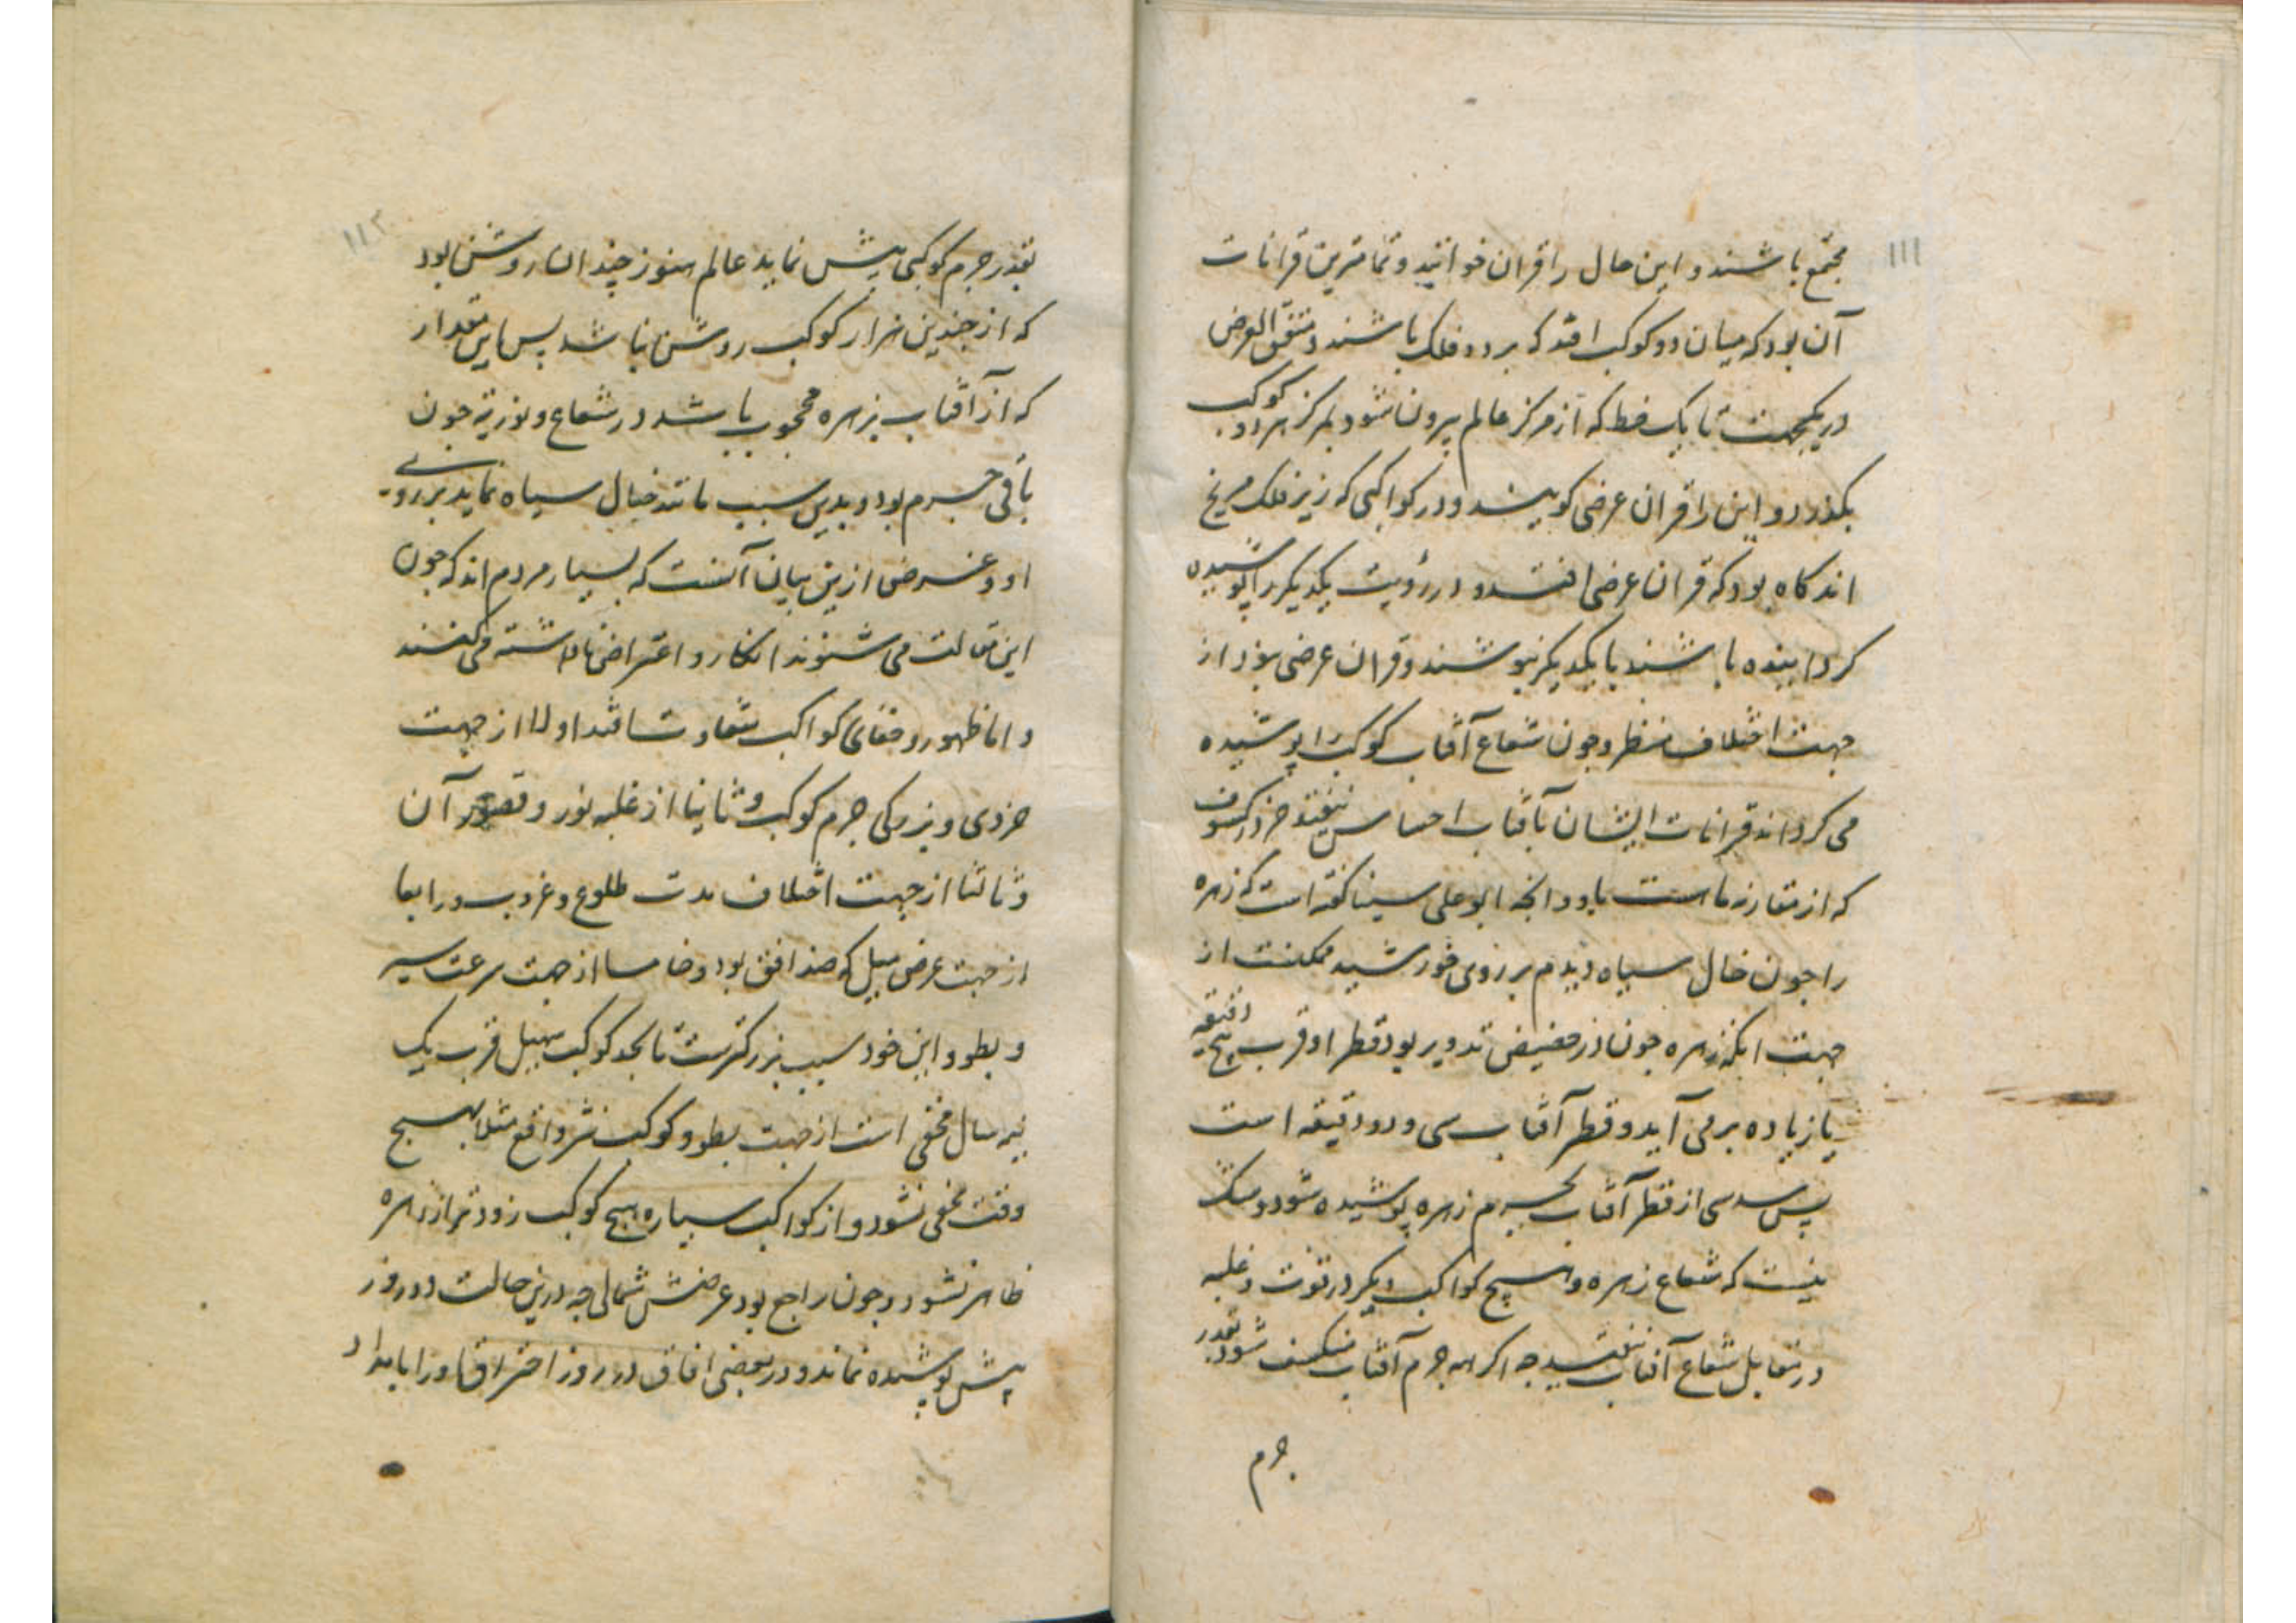 ۱۱۱
مجتمع باشند و این حال را قران خوانند و تمامترین قرانات
آن بود که میان دو کوکب افتد که بر دو فلک باشند و متفق العرض
در یکجهت تا یک خط که از مرکز عالم بیرون شود بمرکز هر دو کوکب
بکذرد و این را قران عرضی کویند و در کواکبی که زیر فلک مریخ
اند کاه بود که قران عرضی افتد و در رؤیت یکدیکر را پوشیده
کردانیده باشند یا یکدیکر نپوشند و قران عرضی بود از
جهت اختلاف منظر و چون شعاع آفتاب کوکب را پوشیده
می کرداند قرانات ایشان بآفتاب احساس نیفتد جز در کسوف
که از مقارنه ماست باو و انجه ابو علی سینا کفته است که زهره
را جون خال سیاه دیدم بر روی خورشید ممکنست از
جهت انکه زهره جون در حضیض تدویر بود قطر او قرب پنج دقیقه
یا زیاده بر می آید و قطر آفتاب سی و دو دقیقه است
پس سدسی از قطر آفتاب بجرم زهره پوشیده شود و شک
نیست که شعاع زهره و هیچ کواکب دیکر در قوت و غلبه
در مقابل شعاع آفتاب نیفتد جه اکر همه جرم آفتاب منکسف شود بقدر
جرم
۱۱۲
بقدر جرم کوکبی بیش نماید عالم هنوز چندان روشن بود
که از جندین هزار کوکب روشن نباشد پس این مقدار
که از آفتاب بزهره محجوب باشد در شعاع و نوریة جون
باقی جرم بود و بدین سبب مانند خیال سیاه نماید بر روی
او و غرض ازین بیان آنست که بسیار مردم اند که جون
این مقالت می شنوند انکار و اعتراض نادانسته می کنند
و اما ظهور و خفای کواکب متفاوت افتد اولا از جهت
خردی و بزرکی جرم کوکب و ثانیا از غلبه نور و قصور آن
و ثالثا از جهت اختلاف مدت طلوع و غروب و رابعا
از جهت عرض میل که ضد افق بود و خامسا از جهت سرعت سیر
و بطو و این خود سبب بزرکترست تا بحد کوکب سهیل قرب یک
نیمه سال مخفی است از جهت بطو و کوکب نسر واقع مثلا بهیچ
وقت مخفی نشود و از کواکب سیاره هیچ کوکب زودتر از زهره
ظاهر نشود و جون راجع بود عرضش شمالی جه درین حالت دو روز
بیش پوشیده نماند و در بعضی افاق در روز احتراق او را بامداد